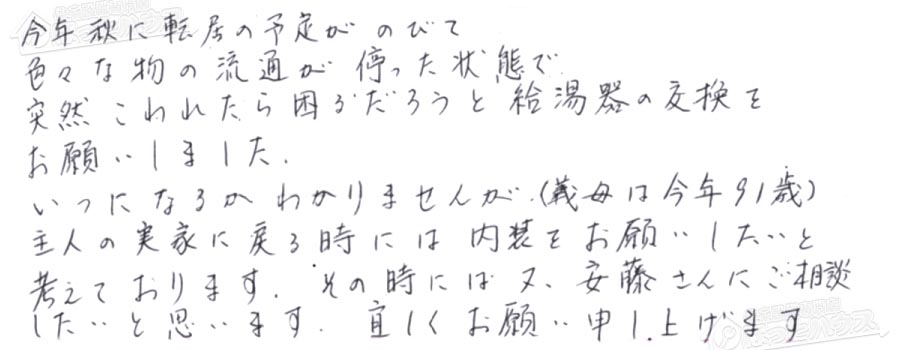 今年秋に転居の予定がのびて
色々な物の流通が停った状態で
突然こわれたら困るだろうと給湯器の交換を
お願いしました.
いつになるかわかりませんが、(義母は今年91歳)
主人の実家に戻る時には内装をお願いしたいと
考えております. その時には又、安藤さんにご相談
したいと思います. 宜しくお願い申し上げます